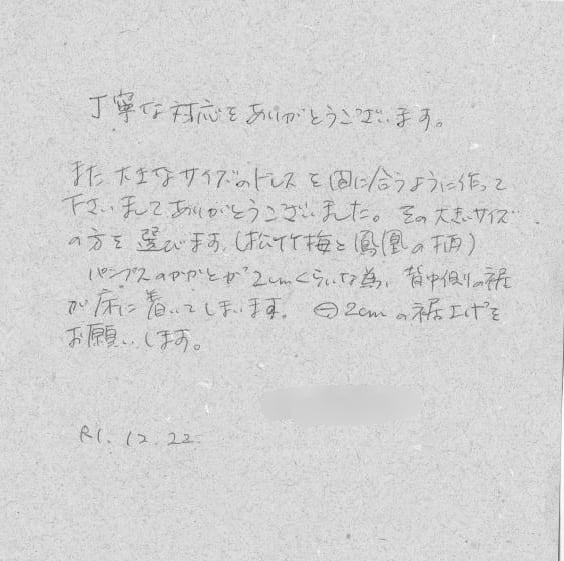 丁寧な対応をありがとうございます。
また大きなサイズのドレスを間に合うように作って
下さいましてありがとうございました。その大きいサイズ
の方を選びます。(松竹梅と鳳凰の柄)
パンプスのかかとが2cmくらいな為、背中側の裾
が床に着いてしまいます。㊀2cmの裾上げを
お願いします。
R1.12.22